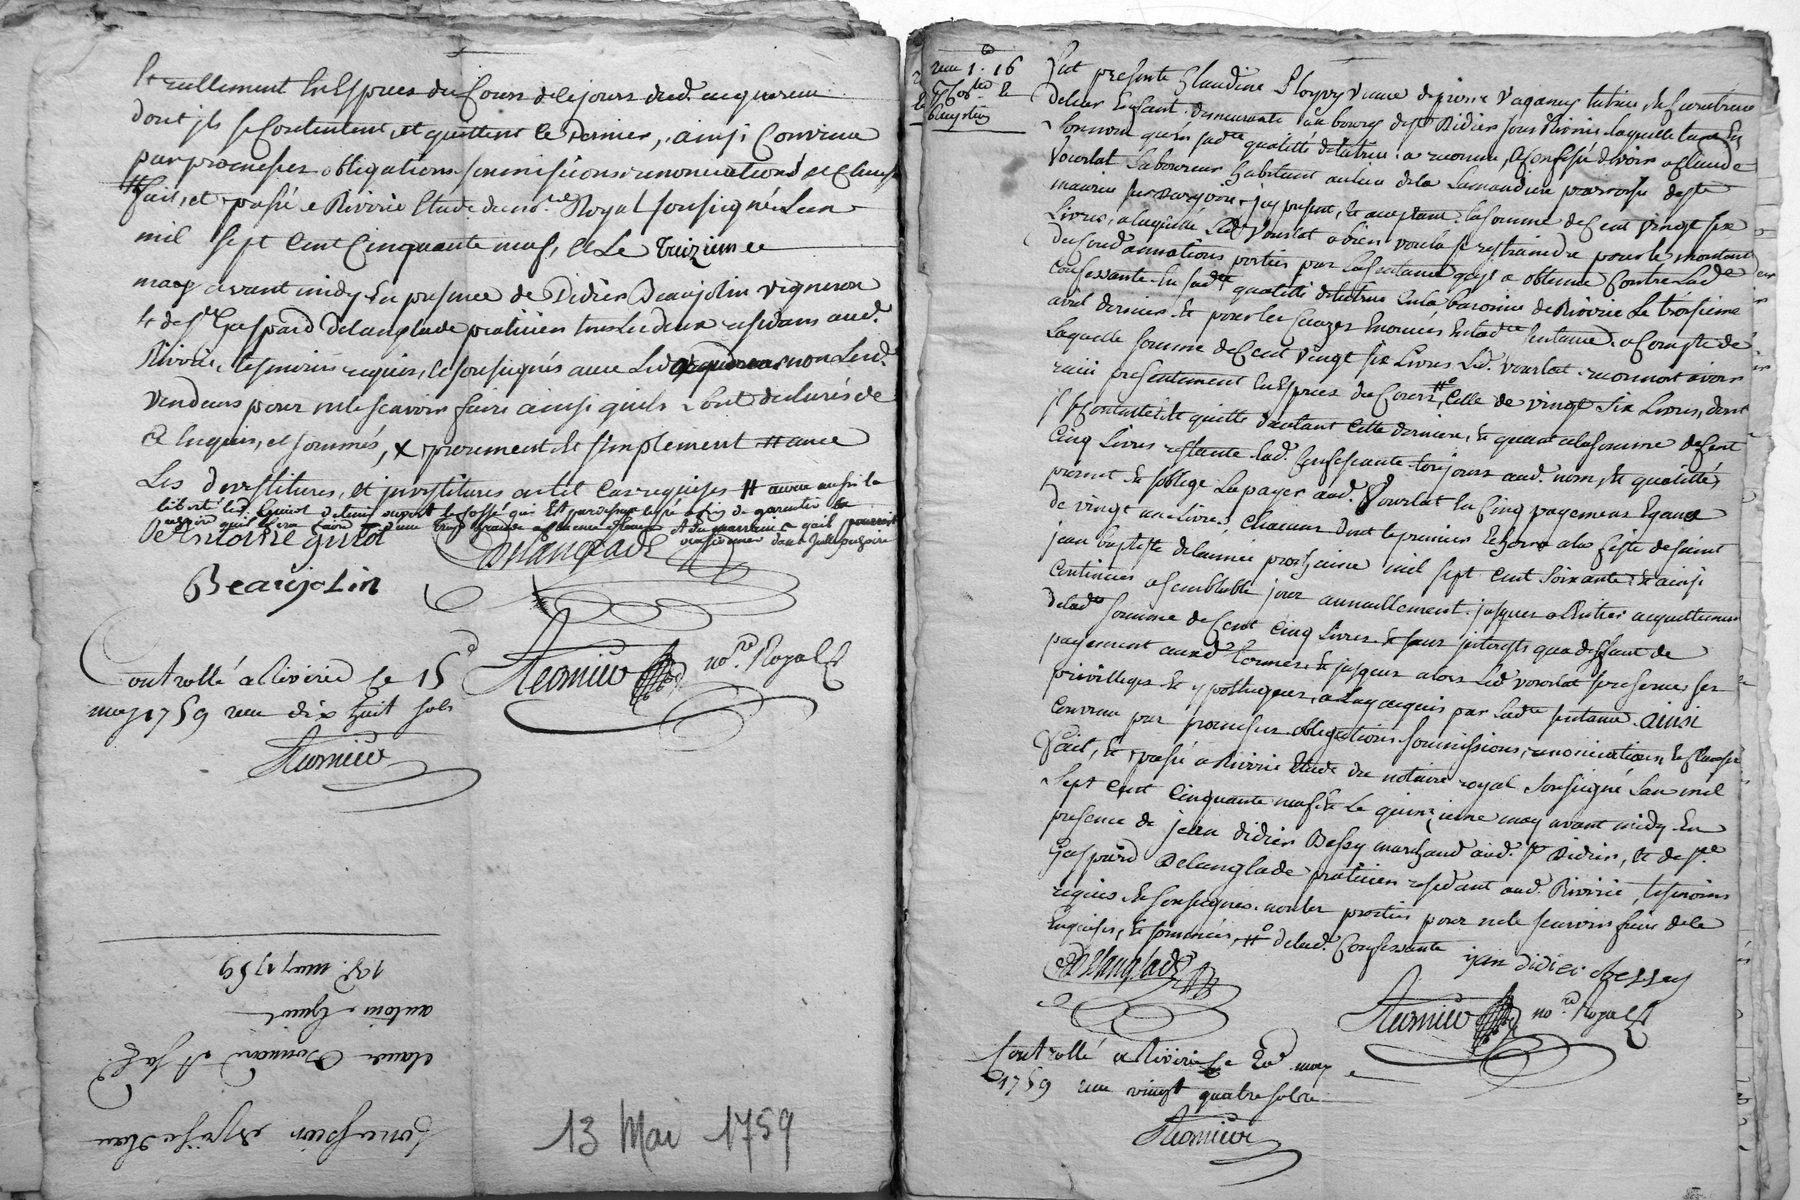 reellement en Especes du Cours de ce jour dud. acquereur
dont ils se Contentent, et quittent ce Dernier, ainsi Convenu
par promesses obligations soumissions renonciations et clauses
fait, et passé a Riverie Etude du no.re Royal soussigné L'an
mil sept Cent Cinquante neuf, et Le treizieme
may avant midy En presence de Didier Beaujolin vigneron
& de s.r Gaspard Delanglade praticien tous les deux residans aud.
Riverie, tesmoins requis, et soussignés avec Led. non Les d.
Vendeurs pour ne le scavoir faire ainsi quils L'ont declarés de
ce Enquis, et sommés, purement et simplement # avec
Les devestitures, et investitures en tel Cas requises #
liberté led. Guiot
Antoine guiot Delanglade
Beaujolin
Controllé a Riverie le 15e
may 1759 reçu dix huit sols
no.re Royal
13. may 1759
antoine Guiot
claude
13 Mai 1759
reçu 1. 16
Fut presente Claudine Ployvy Veuve de pierre Vaganay tutrice de
de leur Enfant demeurante au bourg de s.t Didier sous Riverie laquelle
qu'en sad.te qualitté de tutrice a reconnu, et confessé devoir a Claude
Vourlat Laboureur habitant au lieu de la Lamandiere parroisse de st
maurice sur dargoire icy present, et acceptant la somme de Cent vingt six
Livres, a laquelle Led. Vourlat a bien voulu se restraindre pour le montant
des Condamnations portées par la sentence qu'il a obtenue Contre Lad.e
Confessante En sad.te qualitté de tutrice En la baronnie de Riverie Le troisieme
avril dernier & pour les Enoncés En lad.te sentence, a Compte de
Laquelle somme de Cent vingt six Livres Led. Vourlat reconnoit avoir
reçu presentement En Especes du Cours, Celle de vingt six Livres, dont
il se contente & quitte d'autant Cette derniere, & quant a la somme de Cent
Cinq Livres restante Lad. Confessante toujours aud. nom, & qualitté
promet & s'oblige La payer aud. Vourlat En Cinq payemens Egaux
de vingt une Livre Chacun dont le premier Echera a la feste de saint
jean baptiste de l'année prochaine mil sept Cent soixante & ainsi
Continuer a semblable jour annuellement jusques a l'Entier acquittement
de lad.e somme de Cent Cinq Livres & sans interests qu'a deffaut de
payement auxd. termes & jusques alors Led. Vourlat se reserve ses
privilleges & ypotheques, a Luy acquis par Lad.te sentence. ainsi
Convenu par promesses obligations soumissions, renonciations, & clauses
Fait, & passé a Riverie Etude du notaire royal soussigné Lan mil
sept Cent Cinquante neuf & Le quinzieme may avant midy En
presence de jean didier Bessy marchand aud. st Didier, & de s.r
Gaspard Delanglade praticien residant aud. Riverie, tesmoins
requis, & soussignés non les parties pour ne le scavoir faire de ce
Enquises, & sommées, # de lad. Confessante
Delanglade jean didier Bessy
no.re Royal
Controllé a Riverie le 20e may
1759 reçu vingt quatre sols